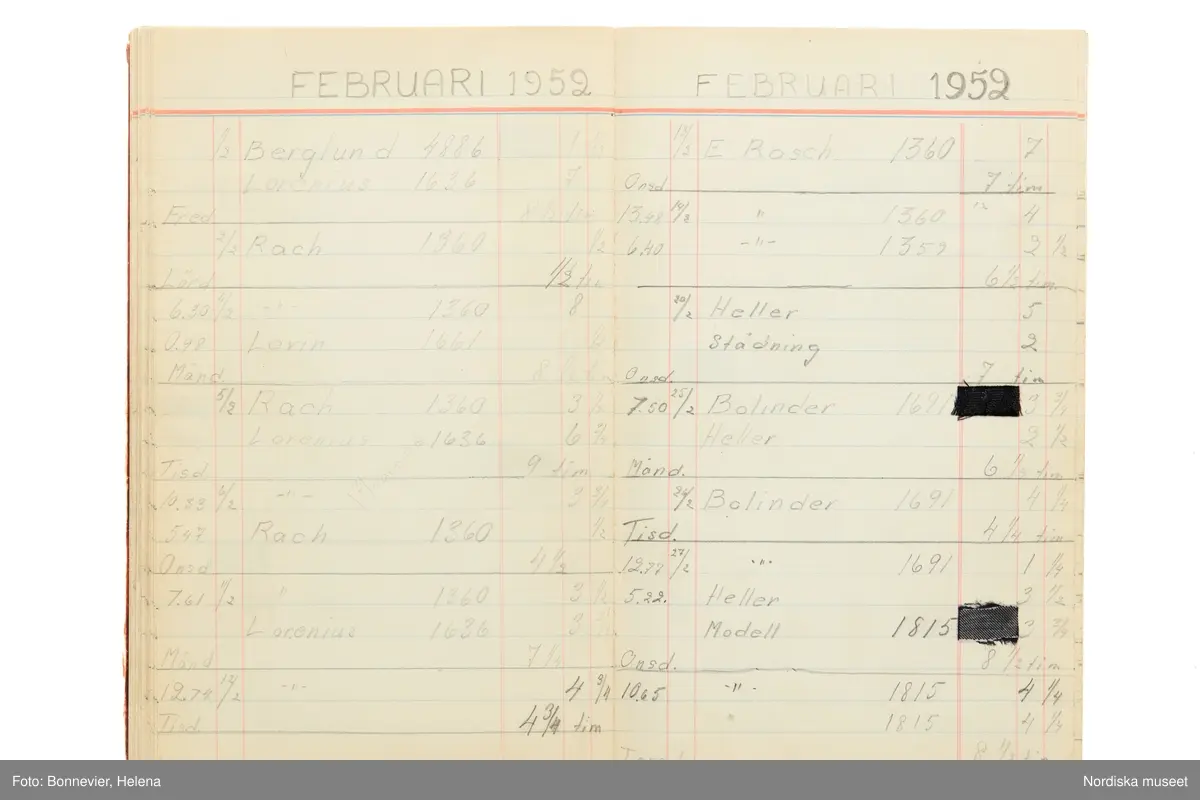 FEBRUARI 1952
1/3 Berglund 4886 1
Lorenius 1636 7
Fred
2/2 Rach 1360 1/2
Lörd 1/2 tim
6.50 4/2 -"- 1360 8
0.48 Lorin 1661
Månd 8
5/2 Rach 1360 3
Lorenius 1636 6
Tisd 9 tim
10.83 6/2 -"- 3
5.47 Rach 1360 1/2
Onsd 4 1/2
7.61 11/2 " 1360 3 1/2
Lorenius 1636 3
Månd 7 1/4
12.78 12/2 -"- 4 3/4
Tisd 4 3/4 tim
FEBRUARI 1952
13/3 E Rosch 1360 7
Onsd 7 tim
13.48 14/2 " 1360 4
6.40 -"- 1359 2 1/2
6 1/2 tim
20/2 Heller 5
Städning 2
Onsd. 7 tim
7.50 25/2 Bolinder 1691 3 3/4
Heller 2 1/2
Månd. 6 1/4 tim
26/2 Bolinder 1691 4 1/4
Tisd. 4 1/4 tim
12.77 27/2 -"- 1691 1 1/4
5.22. Heller 3 1/2
Modell 1815 3 3/4
Onsd. 8 1/2 tim
10.65 -"- 1815 4 1/4
1815 4 1/4
Foto: Bonnevier, Helena
Nordiska museet